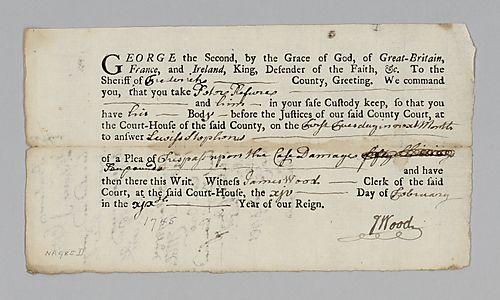 GEORGE the Second, by the Grace of God, of Great-Britain,
France, and Ireland, King, Defender of the Faith, &c. To the
Sheriff of Frederick County, Greeting. We command
you, that you take Peter
and him in your safe Custody keep, so that you
have his Body before the Justices of our said County Court, at
the Court-House of the said County, on the first Tuesday in next Month
to answer Lewis Stephens
of a Plea of Trespass upon the Case Damages
and have
then there this Writ. Witness James Wood Clerk of the said
Court, at the said Court-House, the xiv Day of February
in the Year of our Reign.
1745
JWood